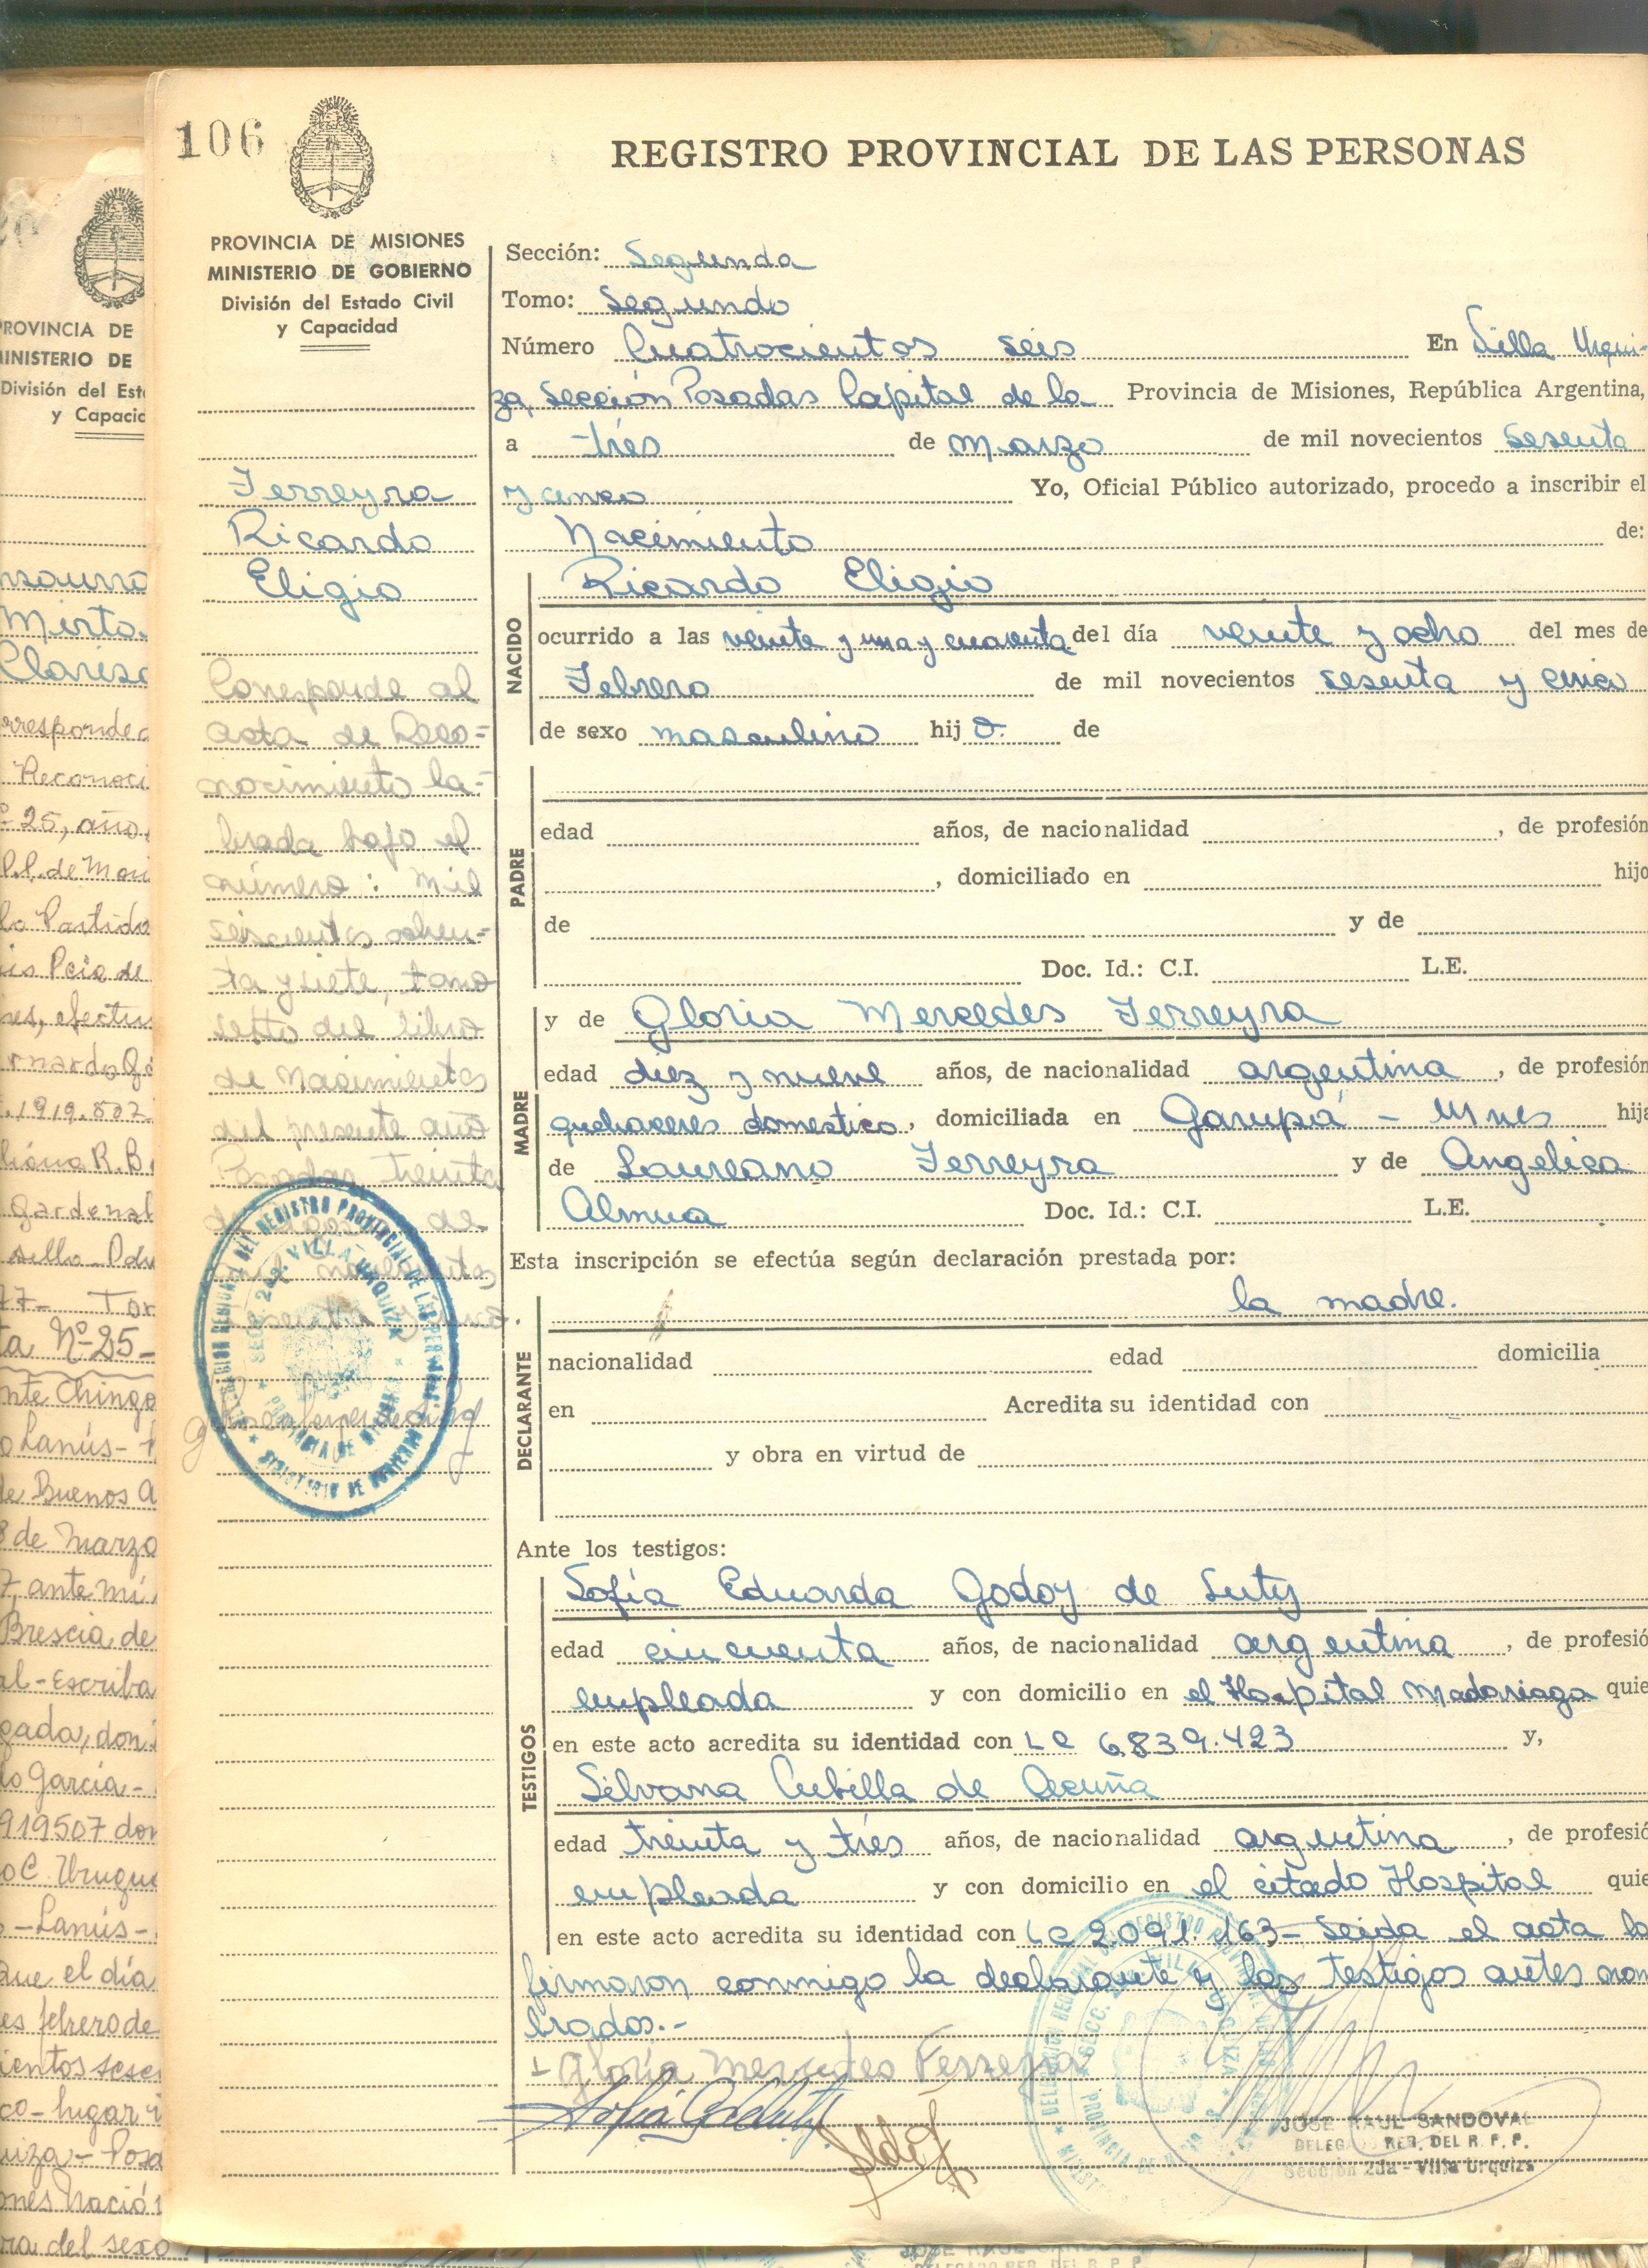 106
REGISTRO PROVINCIAL DE LAS PERSONAS
PROVINCIA DE MISIONES
MINISTERIO DE GOBIERNO
División del Estado Civil
y Capacidad
Ferreyra
Ricardo
Eligio
Corresponde al
acta de Reco=
nocimiento la=
brada bajo el
número: Mil
seiscientos ochen=
ta y siete, tomo
sexto del libro
de Nacimientos
del presente año
Posadas, treinta
de
novecientos
sesenta y cinco.
Sección: Segunda
Tomo: Segundo
Número Cuatrocientos seis En Villa Urqui-
za, Sección Posadas Capital de la Provincia de Misiones, República Argentina,
a tres de Marzo de mil novecientos sesenta
y cinco Yo, Oficial Público autorizado, procedo a inscribir el
Nacimiento de:
NACIDO
Ricardo Eligio
ocurrido a las veinte y una y cuarenta del día veinte y ocho del mes de
Febrero de mil novecientos sesenta y cinco
de sexo masculino hijo. de
PADRE
edad años, de nacionalidad , de profesión
, domiciliado en hijo
de y de
Doc. Id.: C.I. L.E.
MADRE
y de Gloria Mercedes Ferreyra
edad diez y nueve años, de nacionalidad argentina , de profesión
quehaceres domestico, domiciliada en Garupá - Mnes hija
de Laureano Ferreyra y de Angelica
Almua Doc. Id.: C.I. L.E.
Esta inscripción se efectúa según declaración prestada por:
la madre.
DECLARANTE
nacionalidad edad domicilia
en Acredita su identidad con
y obra en virtud de
Ante los testigos:
TESTIGOS
Sofía Eduarda Godoy de Luty
edad cincuenta años, de nacionalidad argentina , de profesió
empleada y con domicilio en el Hospital Madariaga quie
en este acto acredita su identidad con LC 6.839.423 y,
Silvana Cubilla de Acuña
edad treinta y tres años, de nacionalidad argentina , de profesió
empleada y con domicilio en el citado Hospital quie
en este acto acredita su identidad con LC 2.091.163- Leida el acta la
firmaron conmigo la declarante y los testigos antes nom
brados.-
Gloria Mercedes Ferreyra
JOSE RAUL SANDOVAL
DELEGADO REG. DEL R. P. P.
Sección 2da - Villa Urquiza
PROVINCIA DE
MINISTERIO DE
División del Est
y Capacid
Mirta
Reconoci
25, año
lo Partido
de Buenos A
8 de Marzo
7, ante mí,
Brescia de
lo García-
919507 don
-Lanús-
que el día
es febrero de
ra del sexo